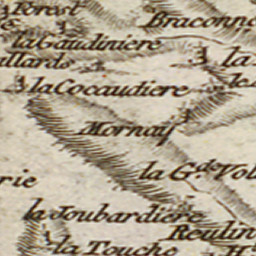 Forest
Braconne
la Gaudiniere
la
illards
la Cocaudiere
les
Mornay
la Gde. Vol
rie
la Joubardiere
Reulin
la Touche